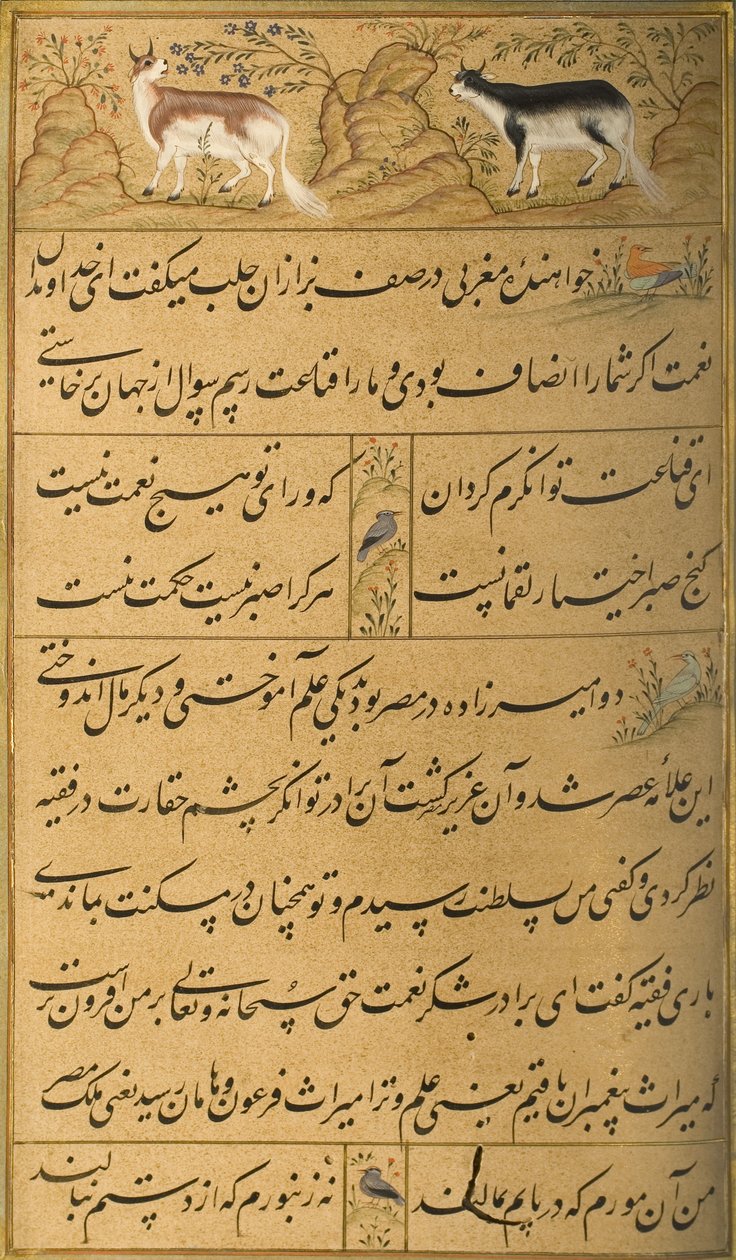 خواهندهٔ مغربی در صف بزازان حلب میکفت ای خداوندان
نعمت اکر شما را انصاف بودی و ما را قناعت رسم سوال از جهان برخاستی
ای قناعت توانکرم کردان
که ورای تو هیچ نعمت نیست
کنج صبر اختیار لقمانست
هر کرا صبر نیست حکمت نیست
دو امیرزاده در مصر بودند یکی علم آموختی و دیکر مال اندوختی
این علامهٔ عصر شد و آن عزیز مصر کشت آن برادر توانکر بچشم حقارت در فقیه
نظر کردی و کفتی من بسلطنت رسیدم و تو همچنان در مسکنت بماندی
باری فقیه کفت ای برادر شکر نعمت حق سبحانه و تعالی بر من افزون تر است
که میراث پیغمبران یافتیم یعنی علم و ترا میراث فرعون و هامان رسید یعنی ملک مصر
من آن مورم که در پایم بمالند
نه زنبورم که از دستم بنالند